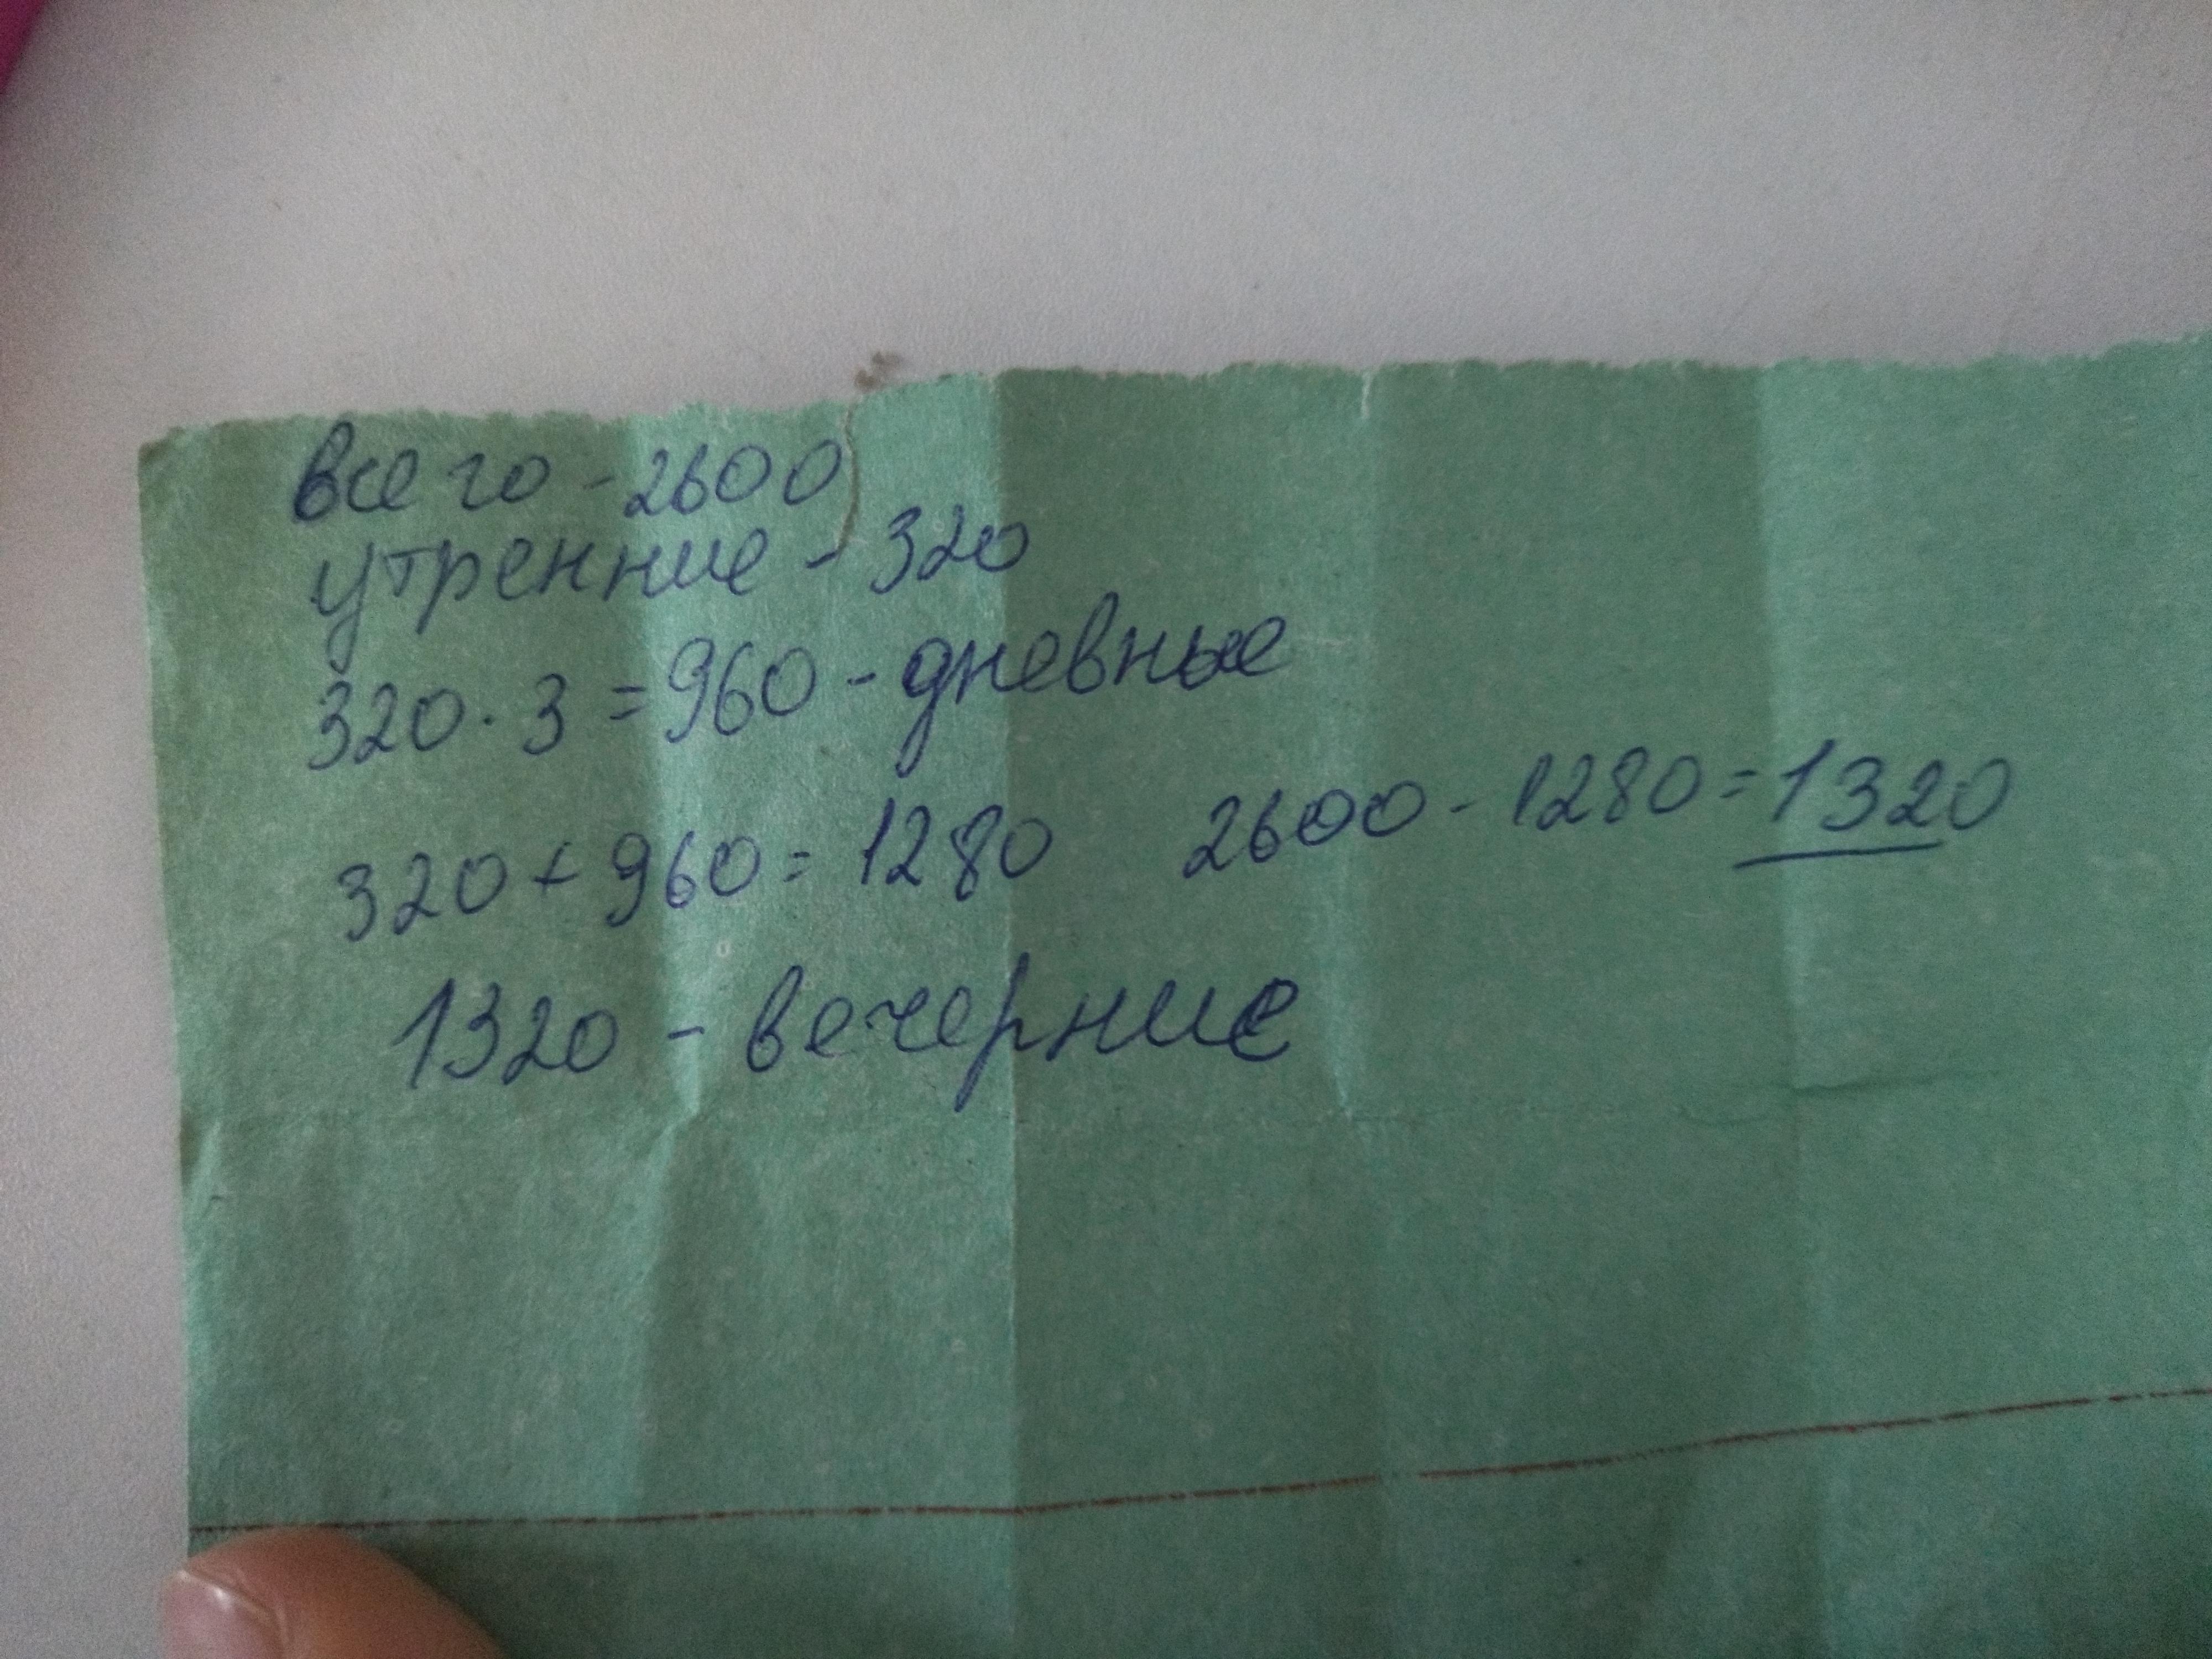 всего - 2600
утренние - 320
320 · 3 = 960 - дневные
320 + 960 = 1280 2600 - 1280 = 1320
1320 - вечерние